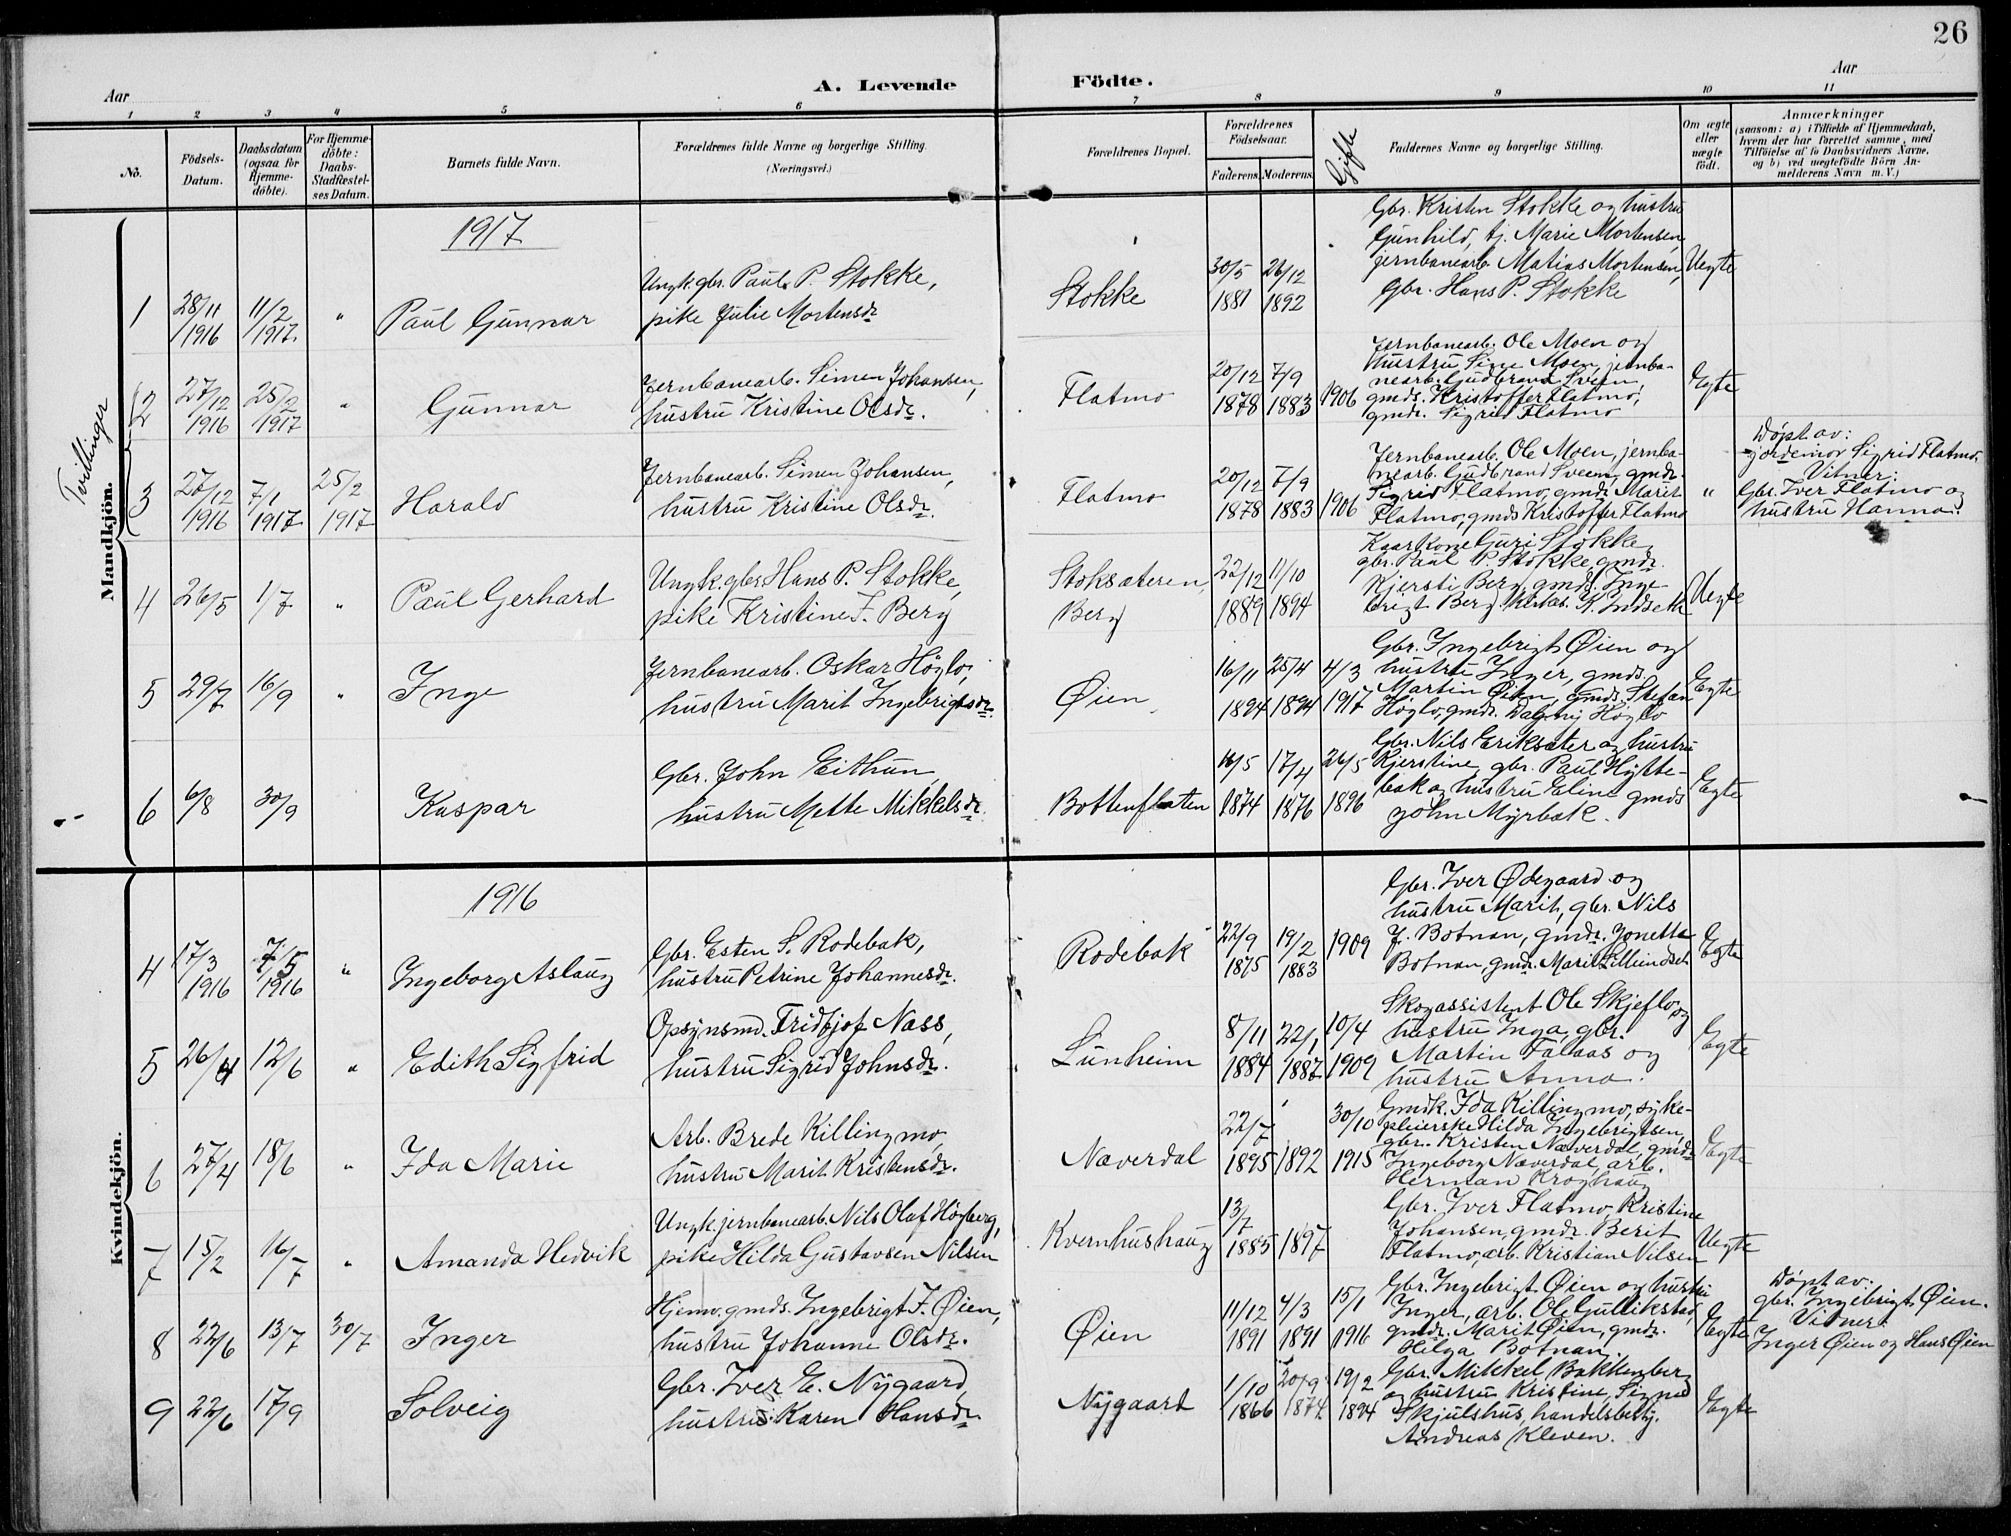 26
Aar
A. Levende Födte.
Aar
1 2 3 4 5 6 7 8 9 10 11
No.
Födsels-
Datum.
Daabsdatum
(ogsaa for
Hjemme-
döbte).
For Hjemme-
döbte:
Daabs-
Stadfæstel-
ses Datum.
Barnets fulde Navn.
Forældrenes fulde Navne og borgerlige Stilling.
(Næringsvei.)
Forældrenes Bopæl.
Forældrenes
Födselsaar.
Faderens. Moderens.
Gifte
Faddernes Navne og borgerlige Stilling.
Om ægte
eller
uægte
födt.
Anmærkninger
(saasom: a) i Tilfælde af Hjemmedaab,
hvem der har forrettet samme, med
Tilföielse af to Daabsvidners Navne,
og b) ved uegtefödte Börn An-
melderens Navn m. V.)
Mandkjön.
Tvillinger
1917
1 28/11 1916 11/2 1917 " Paul Gunnar
Ungk. gbr. Paul P. Stokke,
pike Julie Mortensdr
Stokke
30/5 1881 26/12 1892
Gbr. Kristen Stokke og hustru
Gunhild, tj. Marie Mortensen,
jernbanearb. Matias Mortensen,
Gbr. Hans P. Stokke
Uegte
2 27/12 1916 25/2 1917 " Gunnar
Jernbanearb. Simen Johansen,
hustru Kristine Olsdr.
Flatmo
20/12 1878 7/9 1883 1906
Jernbanearb. Ole Moen og
hustru Sine Moen, jernba-
nearb. Gudbrand Sveen,
gmds. Kristoffer Flatmo,
gmdr. Sigrid Flatmo
Egte
3 27/12 1916 7/1 1917 25/2 1917 Harald
Jernbanearb. Simen Johansen,
hustru Kristine Olsdr.
Flatmo
20/12 1878 7/9 1883 1906
Jernbanearb. Ole Moen, jernba-
nearb. Gudbrand Sveen, gmdr.
Sigrid Flatmo, gmdr. Marit
Flatmo, gmds Kristoffer Flatmo
"
Døpt av:
jordemor Sigrid Flatmo.
Vitner:
Gbr. Iver Flatmo og
hustru Hanna.
4 26/5 1/7 " Paul Gerhard
Ungk. gbr Hans P. Stokke,
pike Kristine F. Berg
Stoksæteren,
Berg
22/12 1889 11/10 1894
Kaarkone Guri Stokke,
gbr. Paul P. Stokke, gmdr.
Kjersti Berg, gmds. Inge-
brigt Berg, K. Indseth
Uegte
5 29/7 16/9 " Inge
Jernbanearb. Oskar Höglo,
hustru Marit Ingebrigtsdr.
Øien
16/11 1894 25/4 1894 4/3 1917
Gbr. Ingebrigt Øien og
hustru Inger, gmds.
Martin Øien, gmds. Stefan
Höglo, gmdr. Dagny Höglo
Egte
6 6/8 30/9 Kaspar
Gbr. John Eithun
hustru Mette Mikkelsdr.
Bottenflaten
16/5 1874 17/4 1876 26/5 1896
Gbr. Nils Eriksæter og hustru
Kjerstine, gbr. Paul Hytte-
bak og hustru Eline gmds
John Myrbak.
Egte
Kvindekjön.
1916
4 17/3 1916 7/5 1916 " Ingeborg Aslaug
Gbr. Esten S. Rodebak,
hustru Petrine Johannesdr.
Rodebak
22/9 1875 19/2 1883 1909
Gbr. Iver Ødegaard og
hustru Marit, gbr. Nils
J. Botnan, gmdr. Jonetta
Botnan, gmdr. Marit Lilleindset
Egte
5 26/4 12/6 " Edith Sigfrid
Opsynsmd. Fridtjof Næss,
hustru Sigrid Johnsdr.
Lunheim
8/11 1884 22/1 1887 10/4 1909
Skogassistent Ole Skjeflo, og
hustru Inga, gbr.
Martin Talaas og
hustru Anna.
Egte
6 27/4 18/6 " Ida Marie
Arb. Brede Killingmo,
hustru Marit Kristensdr.
Næverdal
22/7 1895 1892 30/10 1915
Gmdk. Ida Killingmo, syke-
pleierske Hilda Ingebrigtsen,
gbr. Kristen Næverdal, gmdr
Ingeborg Næverdal, arb.
Herman Kroghaug
Egte
7 15/2 16/7 " Amanda Hedvik
Ungk. jernbanearb. Nils Olaf Högberg,
pike Hilda Gustavsen Nilsen
Kvernhushaug
13/7 1885 1897
Gbr. Iver Flatmo, Kristine
Johansen, gmdr. Berit
Flatmo, arb. Kristian Nilsen
Uegte
8 22/6 13/7 30/7 Inger
Hjemv. gmds. Ingebrigt F. Øien,
hustru Johanne Olsdr.
Øien
11/12 1891 4/3 1891 15/1 1916
Gbr. Ingebrigt Øien og hustru
Inger, arb. Ole Gullikstad,
gmdr. Marit Øien, gmdr.
Helga Botnan
Egte
Døpt av:
gbr. Ingebrigt Øien.
Vitner:
Inger Øien og Hans Øien
9 22/6 17/9 Solveig
Gbr. Iver E. Nygaard,
hustru Karen Hansdr
Nygaard
1/10 1866 20/9 1874 19/2 1894
Gbr. Mikkel Bakkenberg
og hustru Kristine, Signe
Skjulshus, handelsbetj.
Andreas Kleven.
Egte